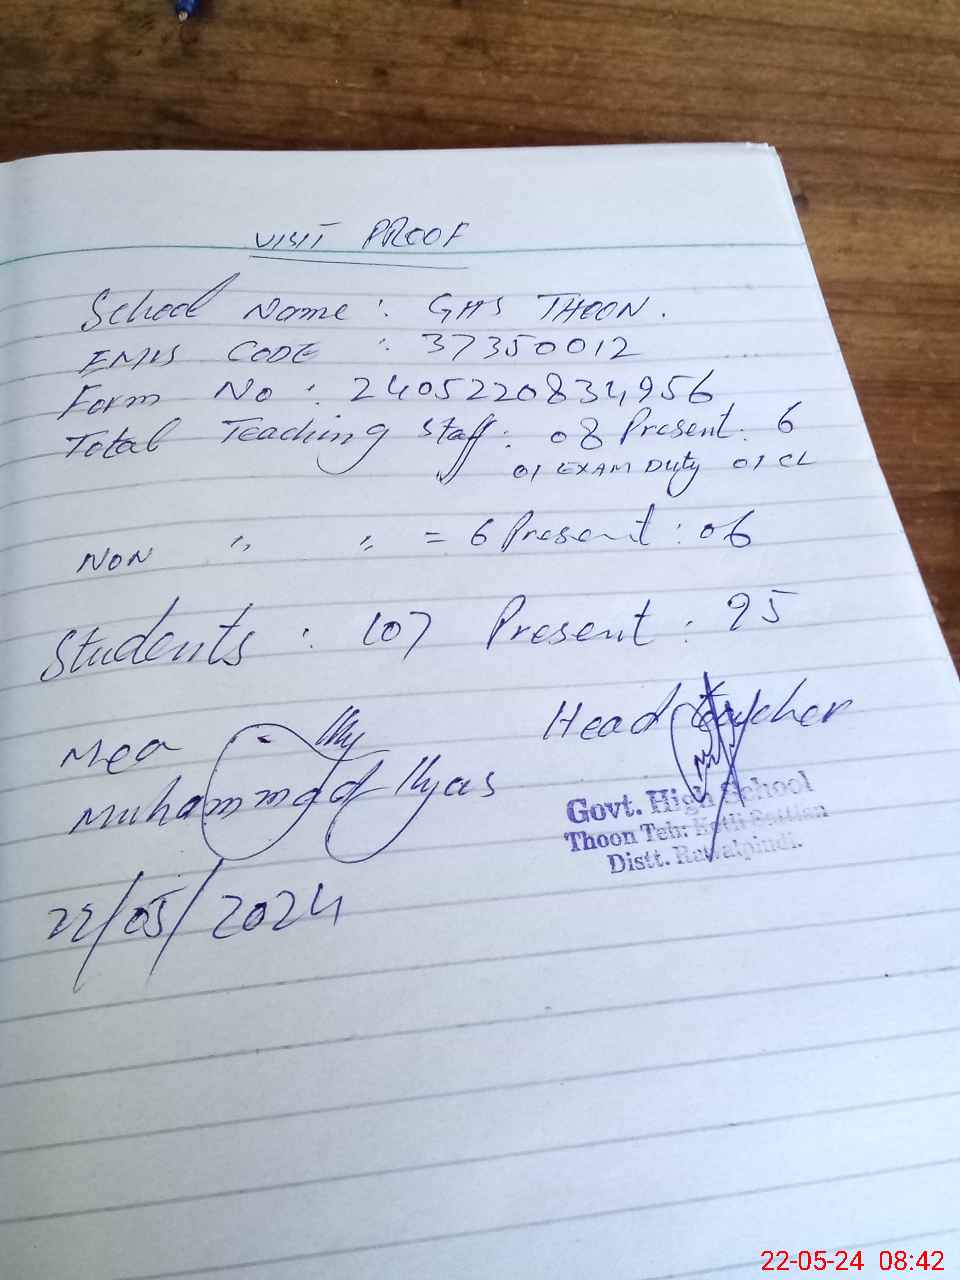 VISIT PROOF
School Name : GHS THOON.
EMIS CODE : 37350012
Form No : 2405220834956
Total Teaching Staff : 08 Present : 6
01 EXAM Duty 01 CL
NON " " = 6 Present : 06
Students : 107 Present : 95
Mea
Muhammad Ilyas
22/05/2024
Head teacher
Govt. High School
Thoon Teh: Kotli Sattian
Distt. Rawalpindi.
22-05-24 08:42